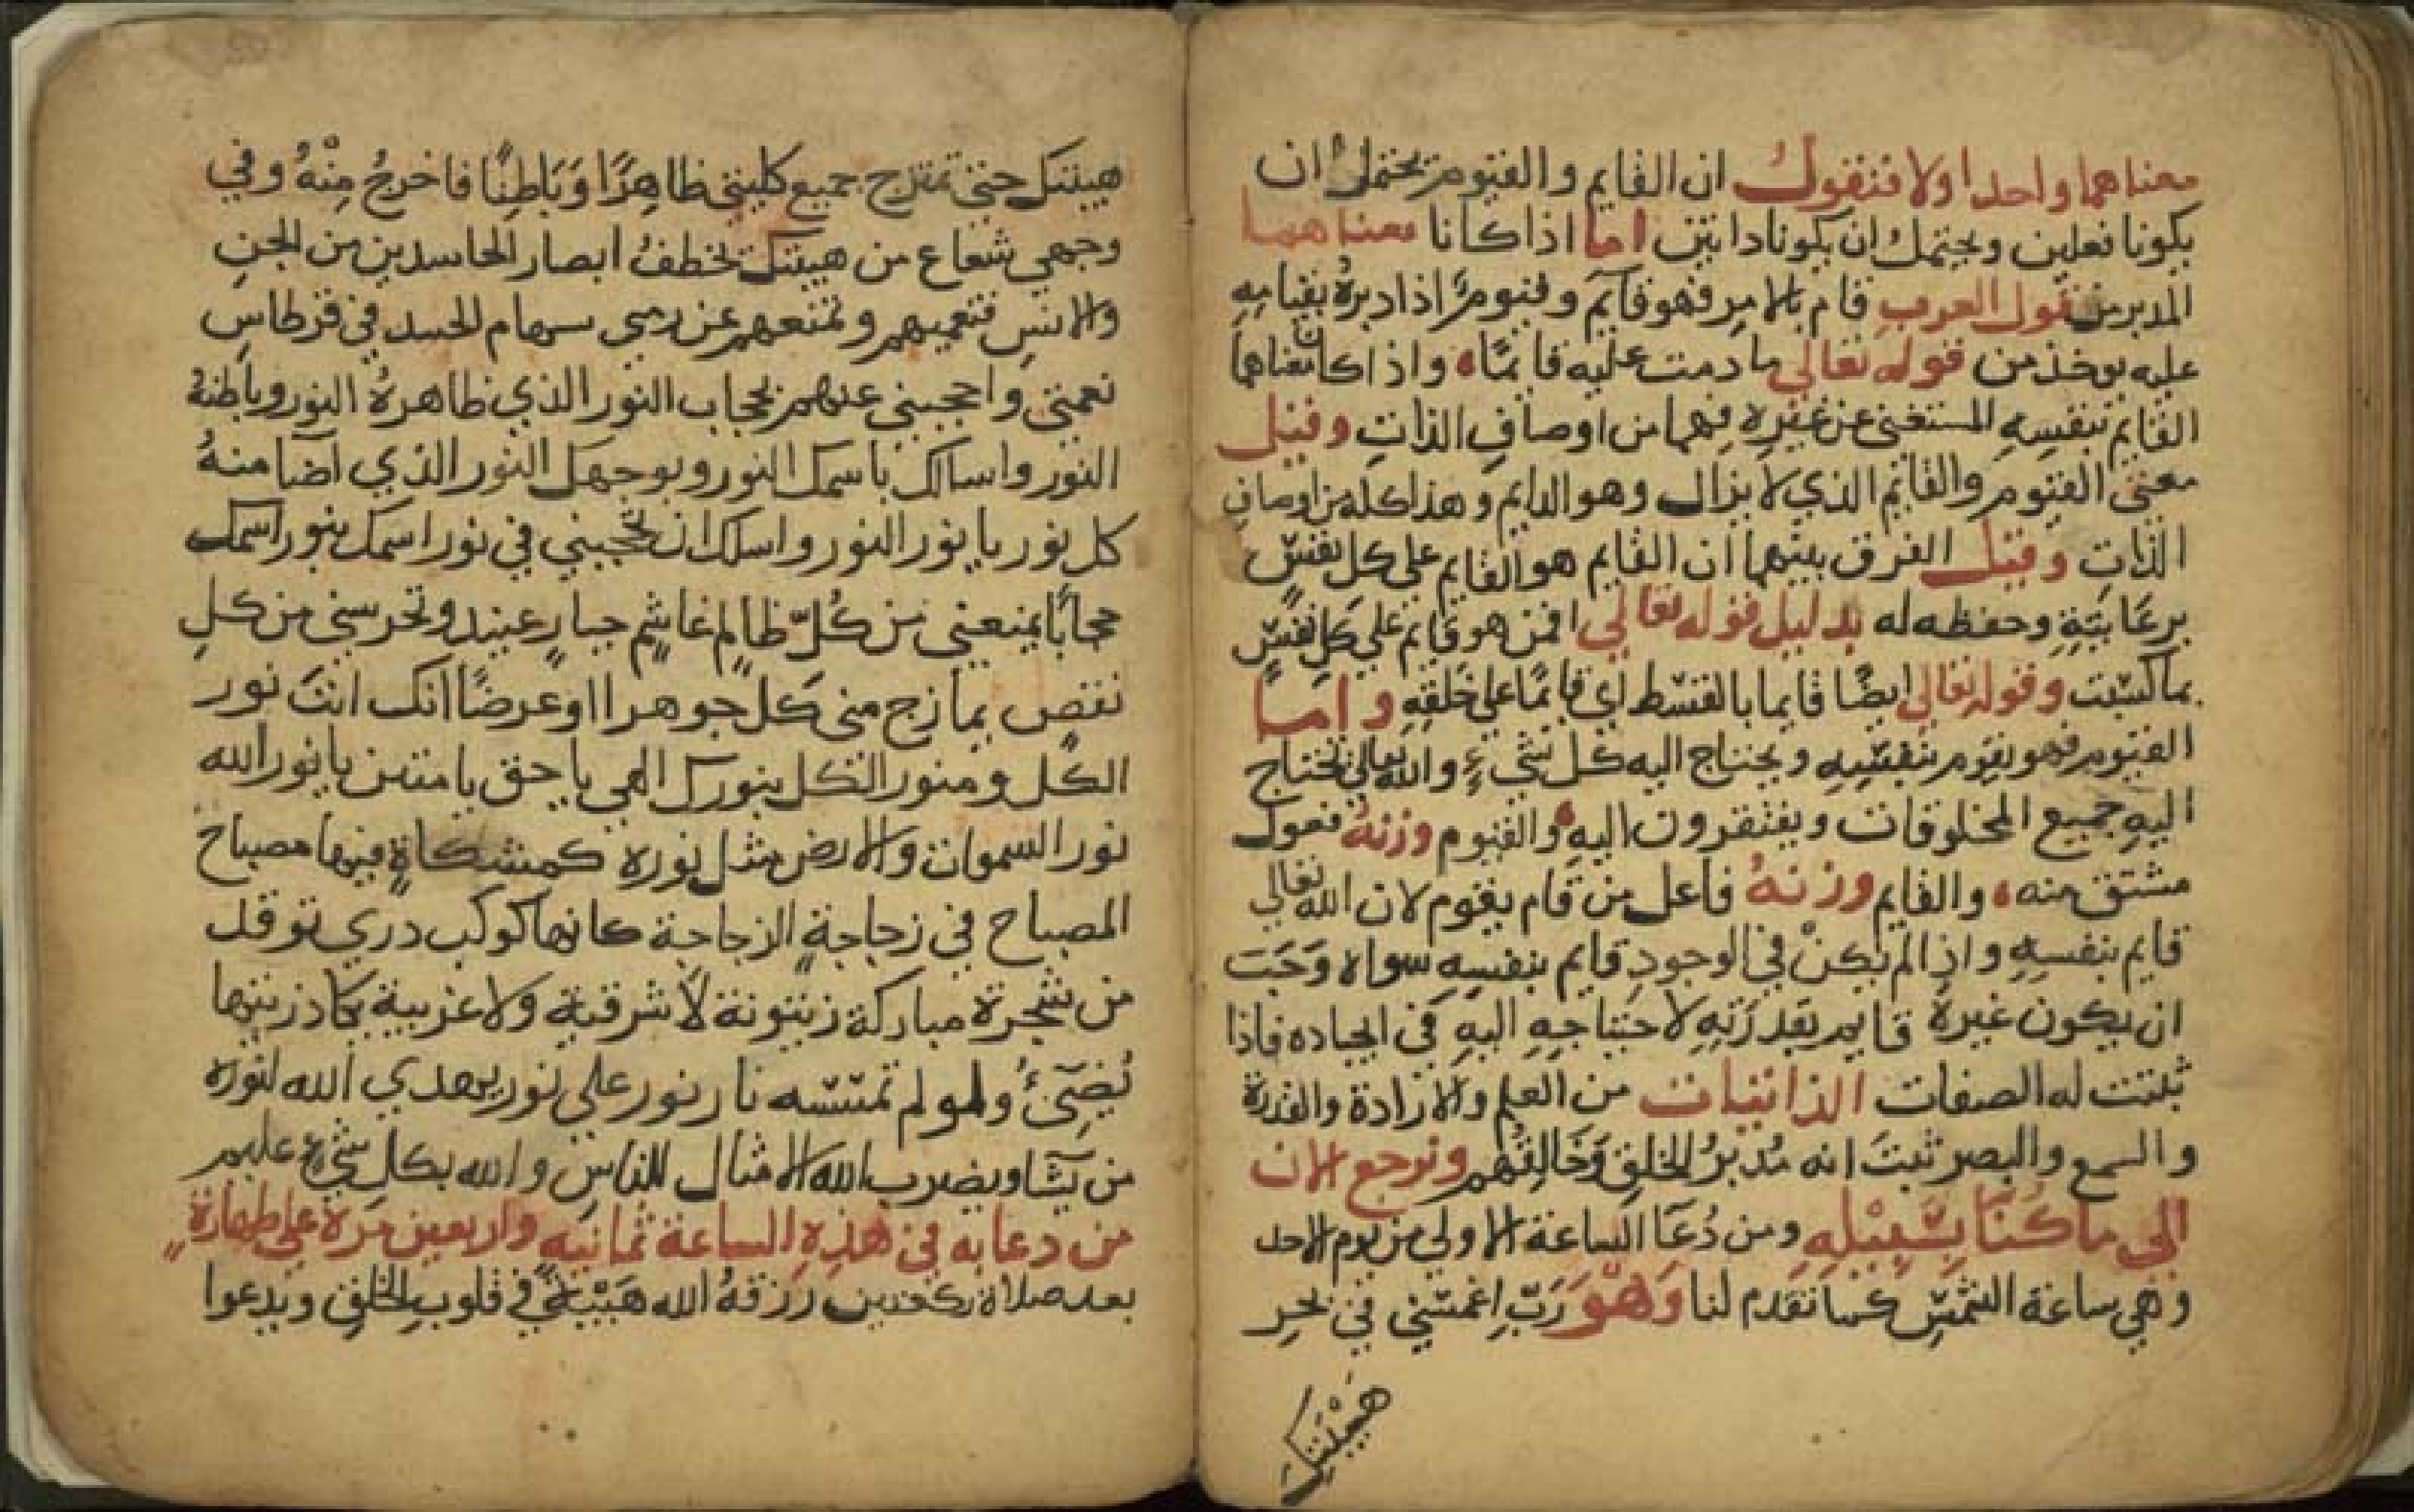 معناهما واحدا اولا فنقول ان القايم والقيوم يحتمل ان
يكونا فعلين ويحتمل ان يكونا ذاتين اما اذا كانا معناهما
المدبر من قول العرب قام بالامر فهو قايم وقيوم اذا دبره بقيامه
عليه يوخذ من قوله تعالى ما دمت عليه قايمًا واذا كان معناهما
القايم بنفسه المستغنى عن غيره فهما من اوصاف الذات وقيل
معنى القيوم والقايم الذي لا يزال وهو الدايم وهذا كله من اوصاف
الذات وقيل الفرق بينهما ان القايم هو القايم على كل نفس
برعايته وحفظه له بدليل قوله تعالى افمن هو قايم على كل نفس
بما كسبت وقوله تعالى ايضًا قايما بالقسط اي قايمًا على خلقه واما
القيوم فهو يقوم بنفسه ويحتاج اليه كل شيء والله تعالى تحتاج
اليه جميع المخلوقات ويفتقرون اليه والقيوم وزنه فعول
مشتق منه والقايم وزنه فاعل من قام يقوم لان الله تعالى
قايم بنفسه واذا لم يكن في الوجود قايم بنفسه سواه وجب
ان يكون غيره قايم بقدرته لاحتياجه اليه في ايجاده فاذا
ثبتت له الصفات الذاتيات من العلم والارادة والقدرة
والسمع والبصر ثبت انه مدبر الخلق وخالقهم ونرجع الان
الى ما كنا بسبيله ومن دعا الساعة الاولى من يوم الاحد
وهي ساعة الشمس كما تقدم لنا وهو رب اغمسني في بحر
هيبتك
هيبتك حتى تمتزج جميع كليتي ظاهرًا وباطنًا فاخرج منه وفي
وجهي شعاع من هيبتك تخطف ابصار الحاسدين من الجن
والانس فتعميهم وتمنعهم عن رمي سهام الحسد في قرطاس
نعمتي واحجبني عنهم بحجاب النور الذي ظاهره النور وباطنه
النور واسالك باسمك النور وبوجهك النور الذي اضا منه
كل نور يا نور النور واسلك ان تحجبني في نور اسمك بنور اسمك
حجابًا يمنعني من كل ظالم غاشم جبار عنيد وتحرسني من كل
نقص يمازج منى كل جوهرا او عرضًا انك انت نور
الكل ومنور الكل بنورك الهي يا حق يا متين يا نور الله
نور السموات والارض مثل نوره كمشكاة فيها مصباح
المصباح في زجاجة الزجاجة كانها كوكب دري توقد
من شجرة مباركة زيتونة لا شرقية ولا غربية يكاد زيتها
يضيء ولو لم تمسسه نار نور على نور يهدي الله لنوره
من يشا ويضرب الله الامثال للناس والله بكل شيء عليم
من دعا به في هذه الساعة ثمانيه واربعين مرة على طهارة
بعد صلاة ركعتين رزقه الله هيبة في قلوب الخلق ويدعوا